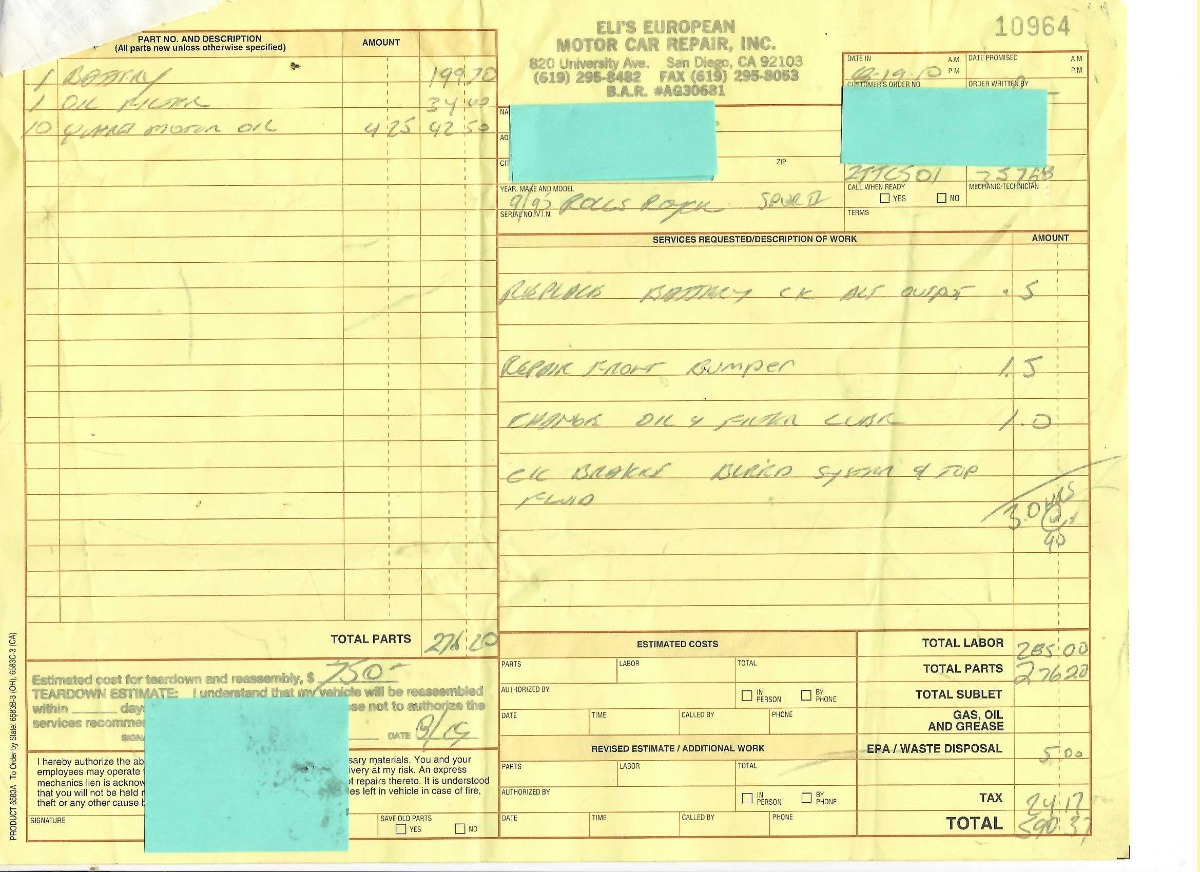 10964
ELI'S EUROPEAN
MOTOR CAR REPAIR, INC.
820 University Ave. San Diego, CA 92103
(619) 295-8482 FAX (619) 295-8053
B.A.R. #AG30681
PART NO. AND DESCRIPTION
(All parts new unless otherwise specified)
AMOUNT
1 BATTERY 199.70
1 OIL FILTER 34.00
10 MOTOR OIL 4 25 42 50
TOTAL PARTS 276.20
DATE IN A.M. P.M.
DATE PROMISED A.M. P.M.
CUSTOMER'S ORDER NO.
ORDER WRITTEN BY
NA
AD
CI
ZIP
2TTC501
CALL WHEN READY
YES NO
MECHANIC/TECHNICIAN
YEAR, MAKE AND MODEL
ROLLS ROYCE SPUR II
SERIAL NO./V.I.N.
TERMS
SERVICES REQUESTED/DESCRIPTION OF WORK AMOUNT
REPLACE BATTERY CK ALT OUTPUT .5
REPAIR FRONT Bumper 1.5
CHANGE OIL & FILTER LUBE 1.0
CK BRAKES BLEED SYSTEM & TOP
FLUID
3.0 HRS
Estimated cost for teardown and reassembly, $ 750-
TEARDOWN ESTIMATE: I understand that my vehicle will be reassembled
within days
se not to authorize the
services recommen
SIGNA
DATE 8/19
I hereby authorize the ab
sary materials. You and your
employees may operate
ivery at my risk. An express
mechanics lien is acknow
f repairs thereto. It is understood
that you will not be held r
es left in vehicle in case of fire,
theft or any other cause b
SIGNATURE
SAVE OLD PARTS
YES NO
ESTIMATED COSTS
PARTS LABOR TOTAL
AUTHORIZED BY IN PERSON BY PHONE
DATE TIME CALLED BY PHONE
REVISED ESTIMATE / ADDITIONAL WORK
PARTS LABOR TOTAL
AUTHORIZED BY IN PERSON BY PHONE
DATE TIME CALLED BY PHONE
TOTAL LABOR 285.00
TOTAL PARTS 276.20
TOTAL SUBLET
GAS, OIL
AND GREASE
EPA / WASTE DISPOSAL 5.00
TAX 24.17
TOTAL 590.37
PRODUCT 6583A To Order by State: 6583B-3 (OH), 6583C-3 (CA)